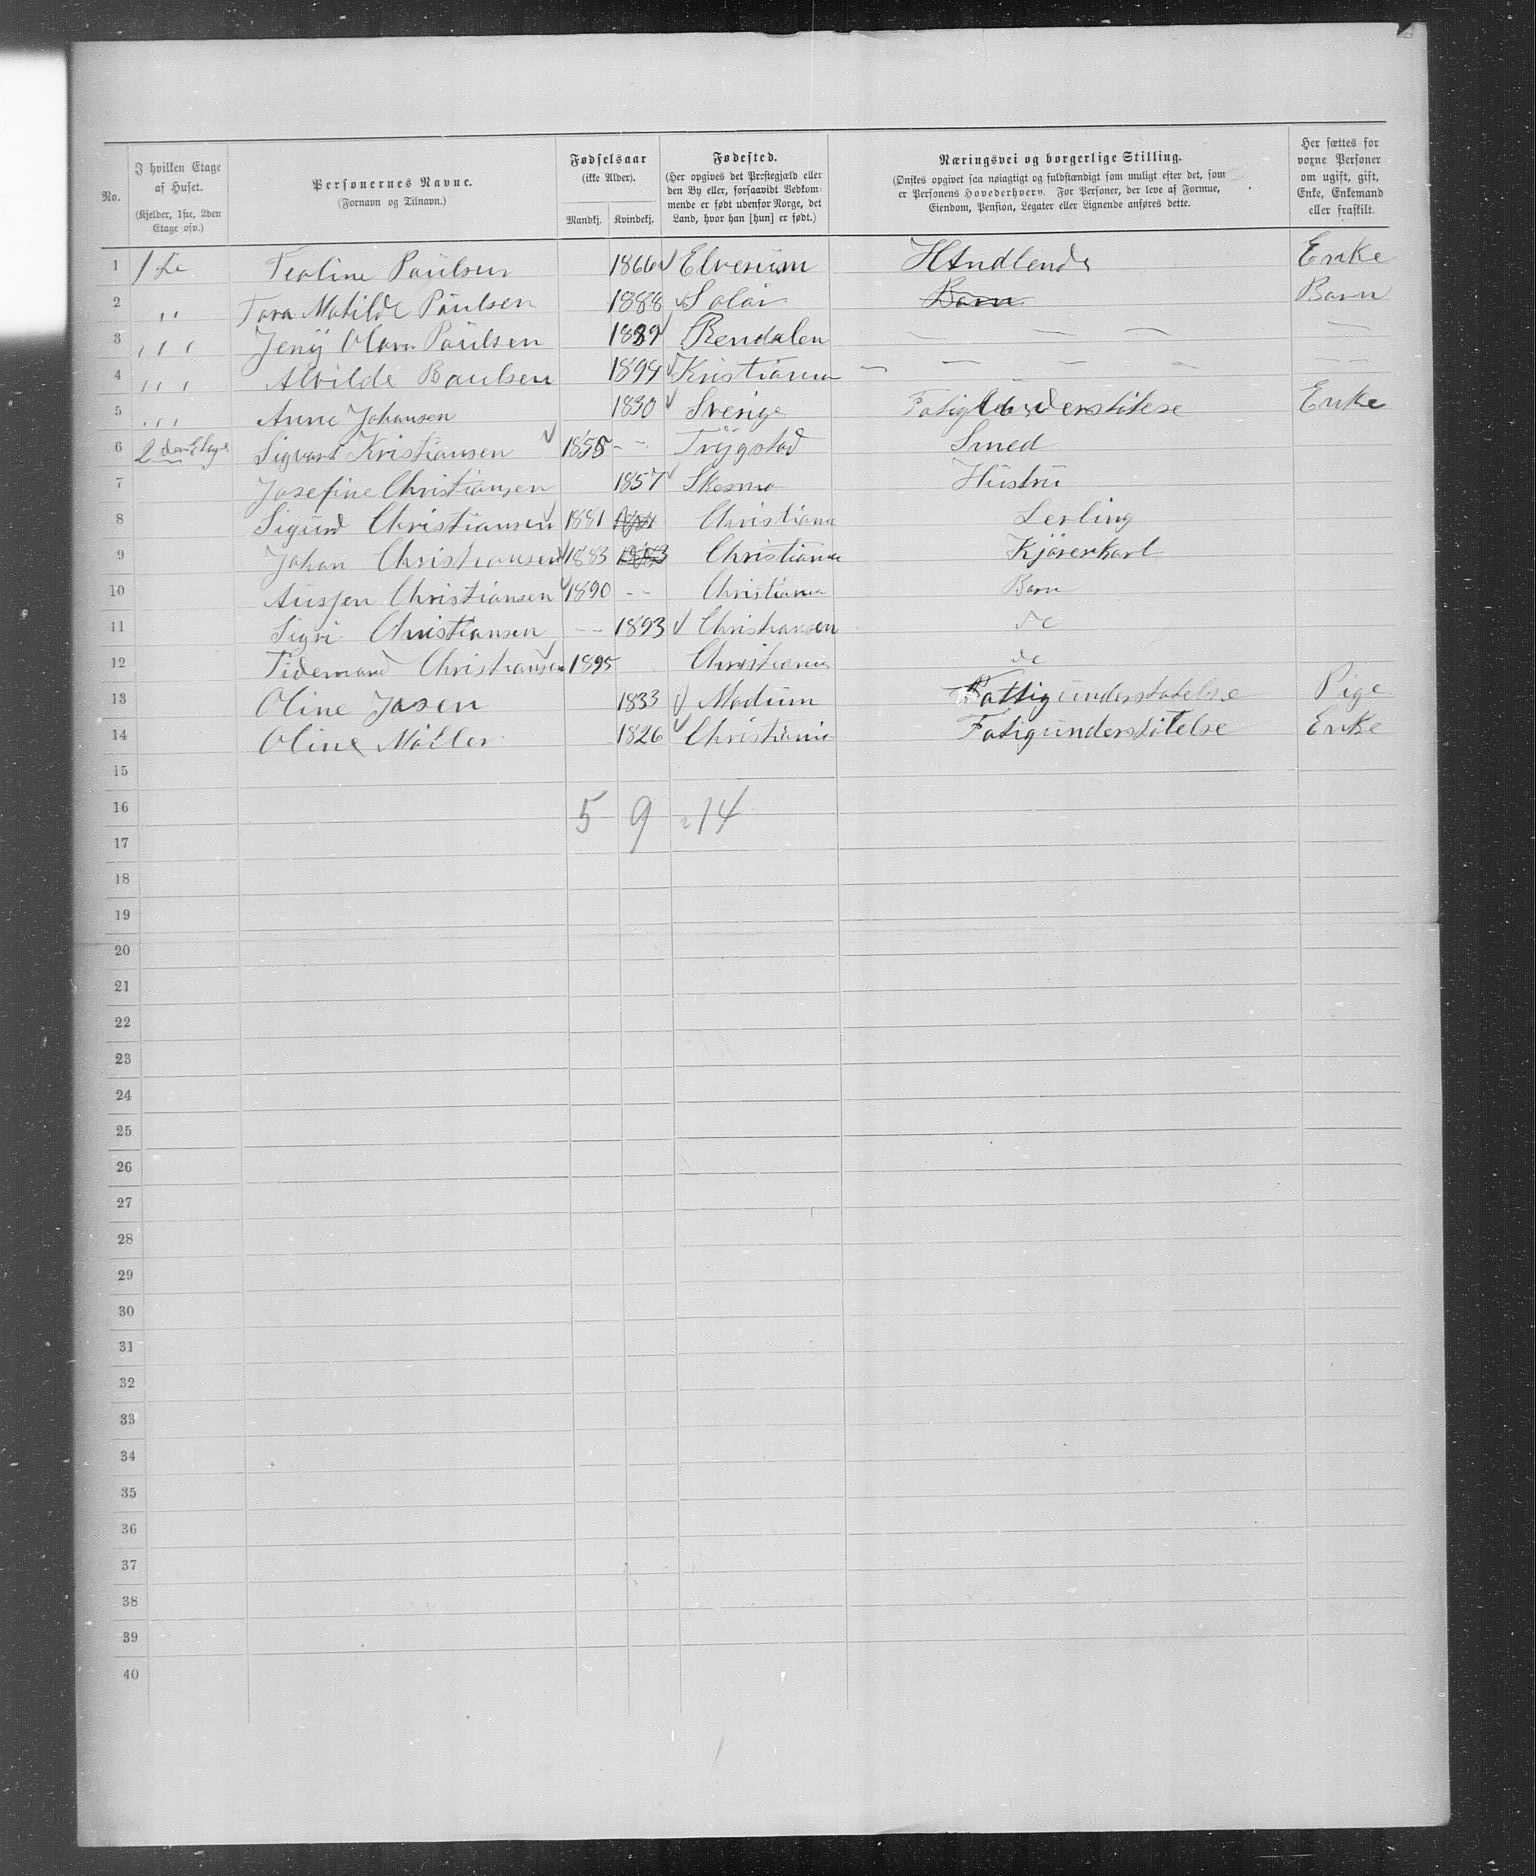 No. I hvilken Etage af Huset. (Kjelder, 1ste, 2den Etage osv.) Personernes Navne. (Fornavn og Tilnavn.) Fødselsaar (ikke Alder). Mandkj. Kvindekj. Fødested. (Her opgives det Prestegjæld eller den By eller, forsaavidt Vedkommende er født udenfor Norge, det Land, hvor han [hun] er født.) Næringsvei og borgerlige Stilling. (Ønskes opgivet saa nøiagtigt og fuldstændigt som muligt efter det, som er Personens Hovederhverv. For Personer, der leve af Formue, Eiendom, Pension, Legater eller Lignende anføres dette. Her sættes for voxne Personer om ugift, gift, Enke, Enkemand eller fraskilt.
1 1 Teoline Paulsen 1866 Elverum Handlende Enke
2 " Tora Matilde Paulsen 1888 Solør Barn Barn
3 " Jeny Paulsen 1889 Rendalen — — — —
4 " Alvilde Baulsen 1894 Kristiania — — — — —
5 " Anne Johansen 1830 Sverige Enke
6 2den Etage Sigvart Kristiansen 1855 -- Trygstad Smed
7 Josefine Christiansen 1857 Hustru
8 Sigurd Christiansen 1881 Christiania Lerling
9 Johan Christiansen 1883 1883 Christiania Kjørerkarl
10 Christiansen 1890 -- Christiania Barn
11 Sigri Christiansen -- 1893 Christiansen do
12 Tidemand Christiansen 1895 Christiania do
13 Oline Josen 1833 Modum Fattigunderstøtelse Pige
14 Oline Møller 1826 Christiania Fatigunderstøtelse Enke
15
16 5 9 = 14
17
18
19
20
21
22
23
24
25
26
27
28
29
30
31
32
33
34
35
36
37
38
39
40